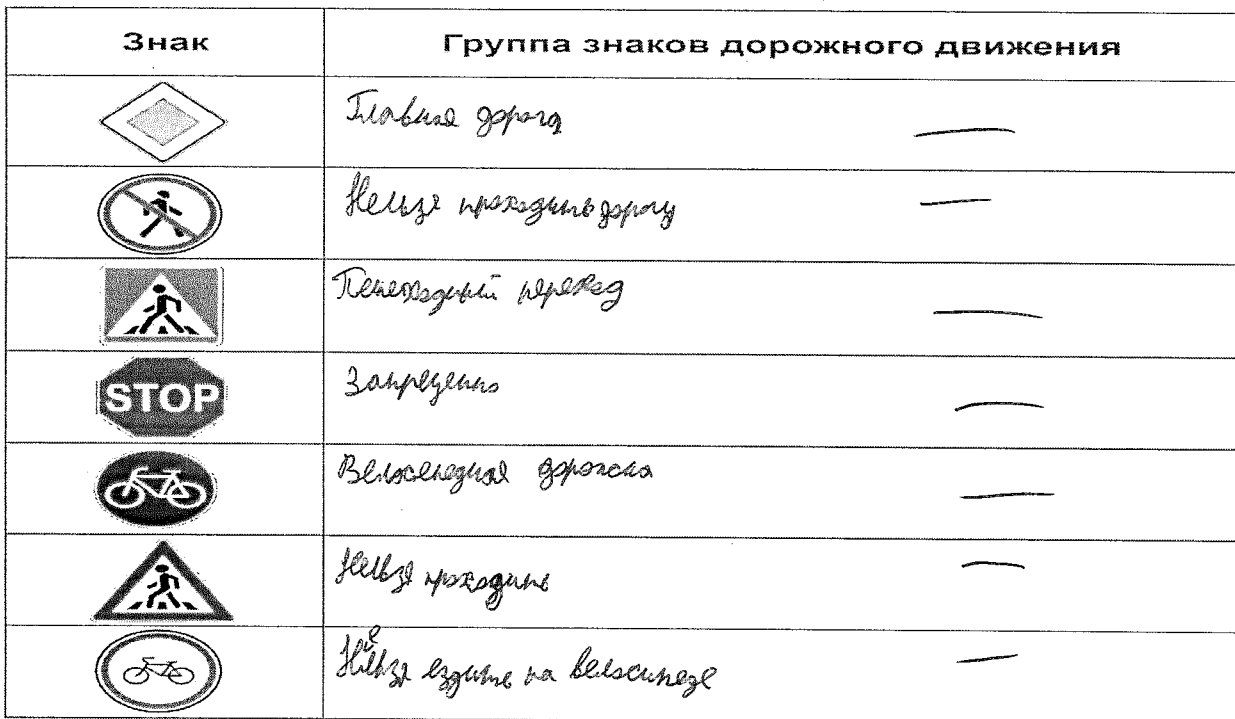 Знак Группа знаков дорожного движения
Главная дорога —
Нельзя проходить дорогу —
Пешеходный переход —
STOP Запрещенно —
Велосепедная дорожка —
Нельзя проходить —
Нельзя ездить на велосипеде —